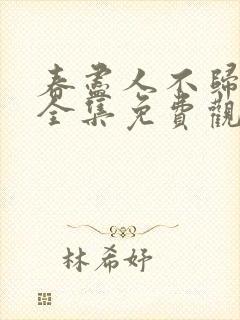 春盡人不歸
全集免費觀
林希妤